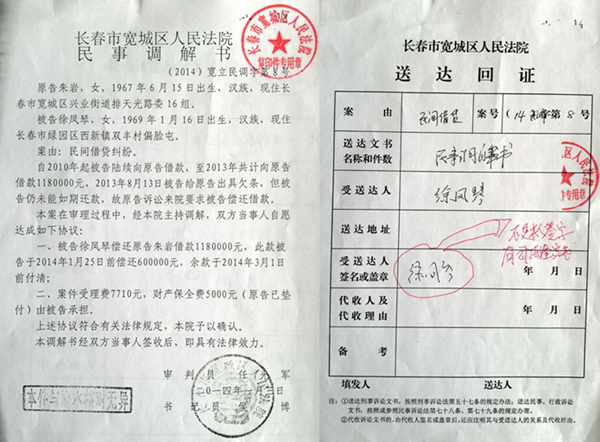 长春市宽城区人民法院
民事调解书
（2014）宽立民调字第8号
原告朱岩，女，1967年6月15日出生，汉族，现住长
春市宽城区兴业街道排天光路委16组。
被告徐凤琴，女，1969年1月16日出生，汉族，现住
长春市绿园区西新镇双丰村偏脸屯。
案由：民间借贷纠纷。
自2010年起被告陆续向原告借款，至2013年共计向原告
借款1180000元，2013年8月13日被告给原告出具欠条，但被
告仍未能如期还款，故原告诉讼来院要求被告偿还借款。
本案在审理过程中，经本院主持调解，双方当事人自愿
达成如下协议：
一、被告徐凤琴偿还原告朱岩借款1180000元，此款被
告于2014年1月25日前偿还600000元，余款于2014年3月1日
前付清；
二、案件受理费7710元，财产保全费5000元（原告已垫
付）由被告承担。
上述协议符合有关法律规定，本院予以确认。
本调解书经双方当事人签收后，即具有法律效力。
审判员 任 军
二〇一四年 月 日
书记员 侯 博
本件与原本核对无异
长春市宽城区人民法院
复印件专用章
长春市宽城区人民法院
送达回证
案由 民间借贷 案号 （14） 第8号
送达文书
名称和件数 民事调解书
受送达人 徐凤琴
送达地址
不是本人签字
受送达人
签名或盖章 年 月 日
代收人及
代收理由 年 月 日
备考
填发人 送达人
注：①送达刑事诉讼文书，按照刑事诉讼法第五十七条的规定办；送达民事、行政诉讼
文书，按照或参照民事诉讼法第七十八条、第七十九条的规定办理。
②代收诉讼文书的，由代收人签名或盖章后，还应注明其与受送达人的关系及代收理由。
区人民法院
件专用章